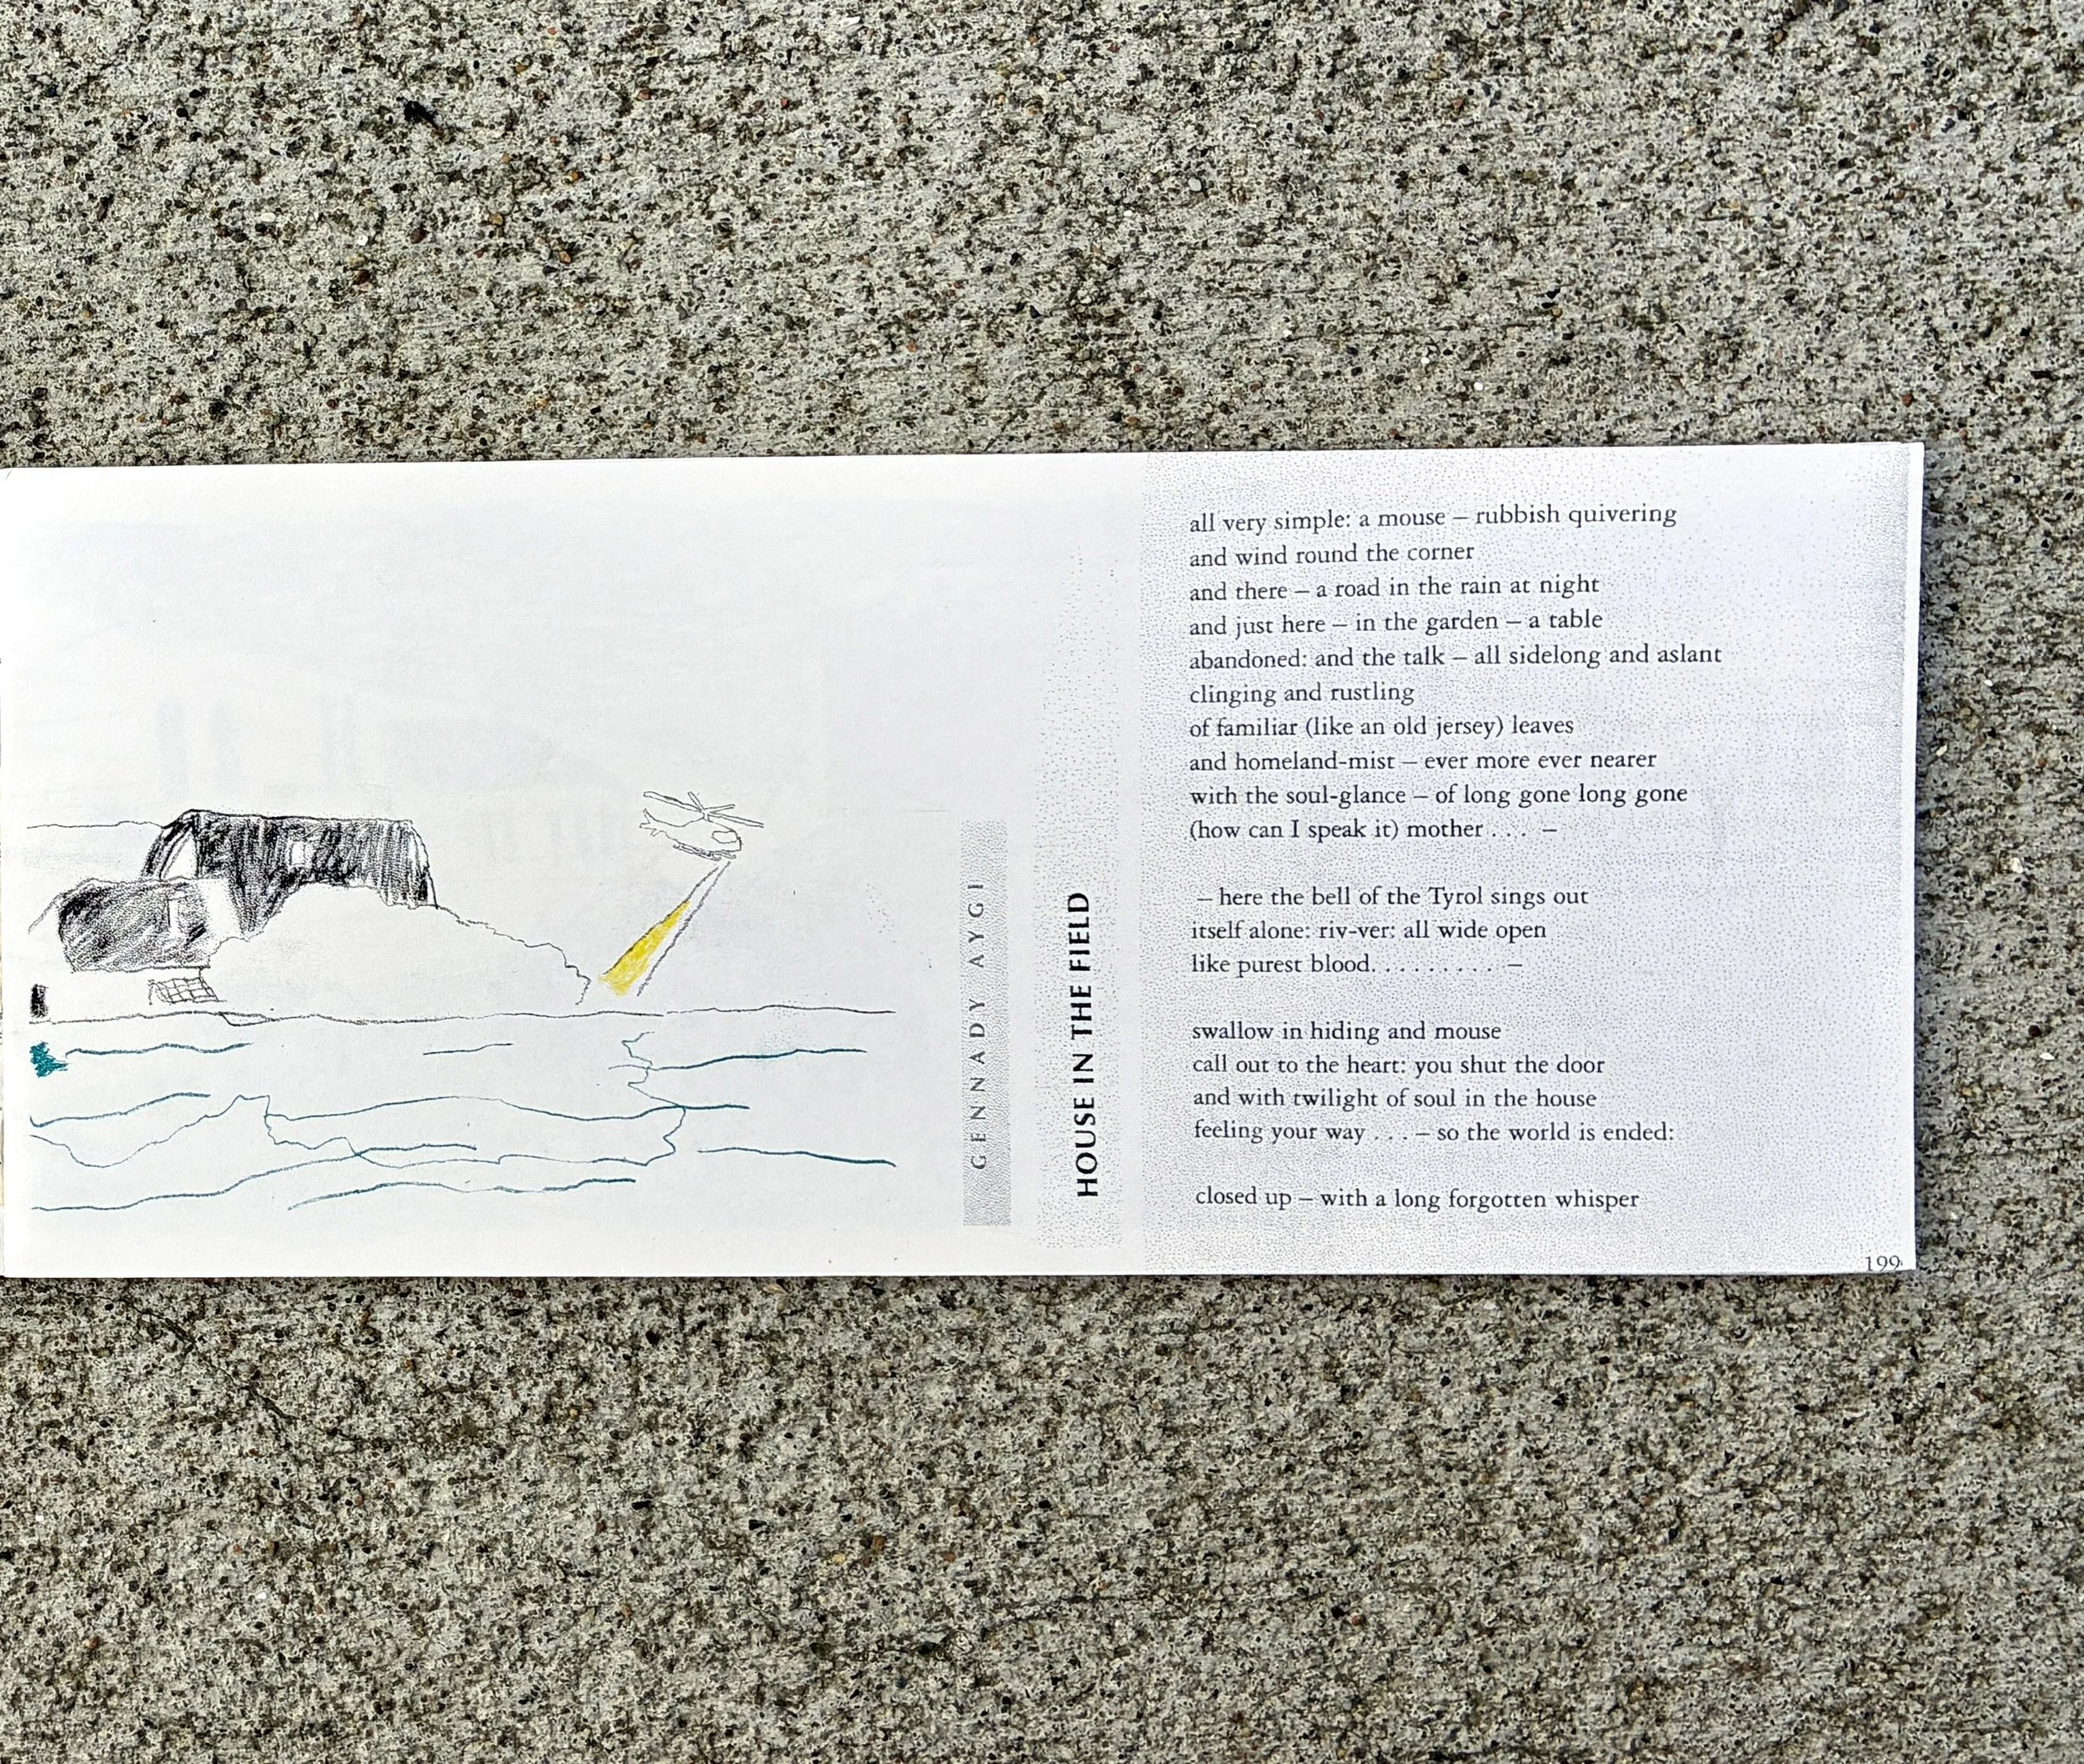 GENNADY AYGI
HOUSE IN THE FIELD
all very simple: a mouse – rubbish quivering
and wind round the corner
and there – a road in the rain at night
and just here – in the garden – a table
abandoned: and the talk – all sidelong and aslant
clinging and rustling
of familiar (like an old jersey) leaves
and homeland-mist – ever more ever nearer
with the soul-glance – of long gone long gone
(how can I speak it) mother . . . –
– here the bell of the Tyrol sings out
itself alone: riv-ver: all wide open
like purest blood. . . . . . . . . . –
swallow in hiding and mouse
call out to the heart: you shut the door
and with twilight of soul in the house
feeling your way . . . – so the world is ended:
closed up – with a long forgotten whisper
199